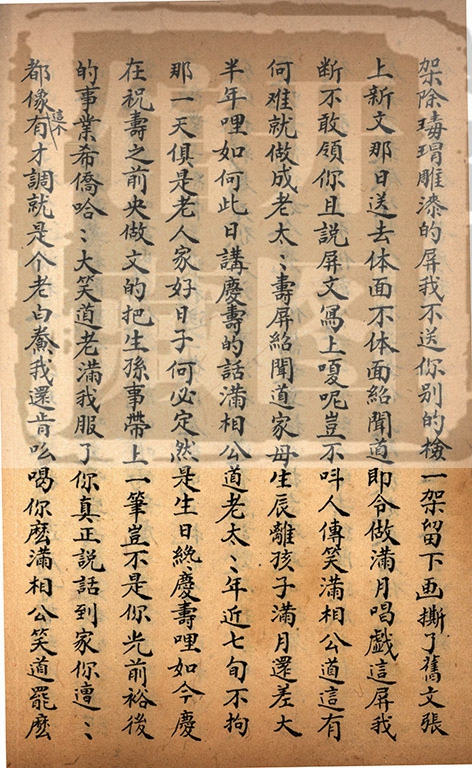 架除瑇瑁雕漆的屏我不送你别的檢一架留下画撕了舊文張
上新文那日送去体面不体面紹聞道即令做滿月唱戲這屏我
断不敢領你且說屏文寫上嗄呢豈不呌人傳笑滿相公道這有
何难就做成老太〻壽屏紹聞道家母生辰離孩子滿月還差大
半年哩如何此日講慶壽的話滿相公道老太〻年近七旬不拘
那一天俱是老人家好日子何必定然是生日終慶壽哩如今慶
在祝壽之前央做文的把生孫事帶上一筆豈不是你光前裕後
的事業希僑哈〻大笑道老滿我服了你真正說話到家你遭〻
都像這个有才調就是个老白鯗我還肯吆喝你麽滿相公笑道罷麽